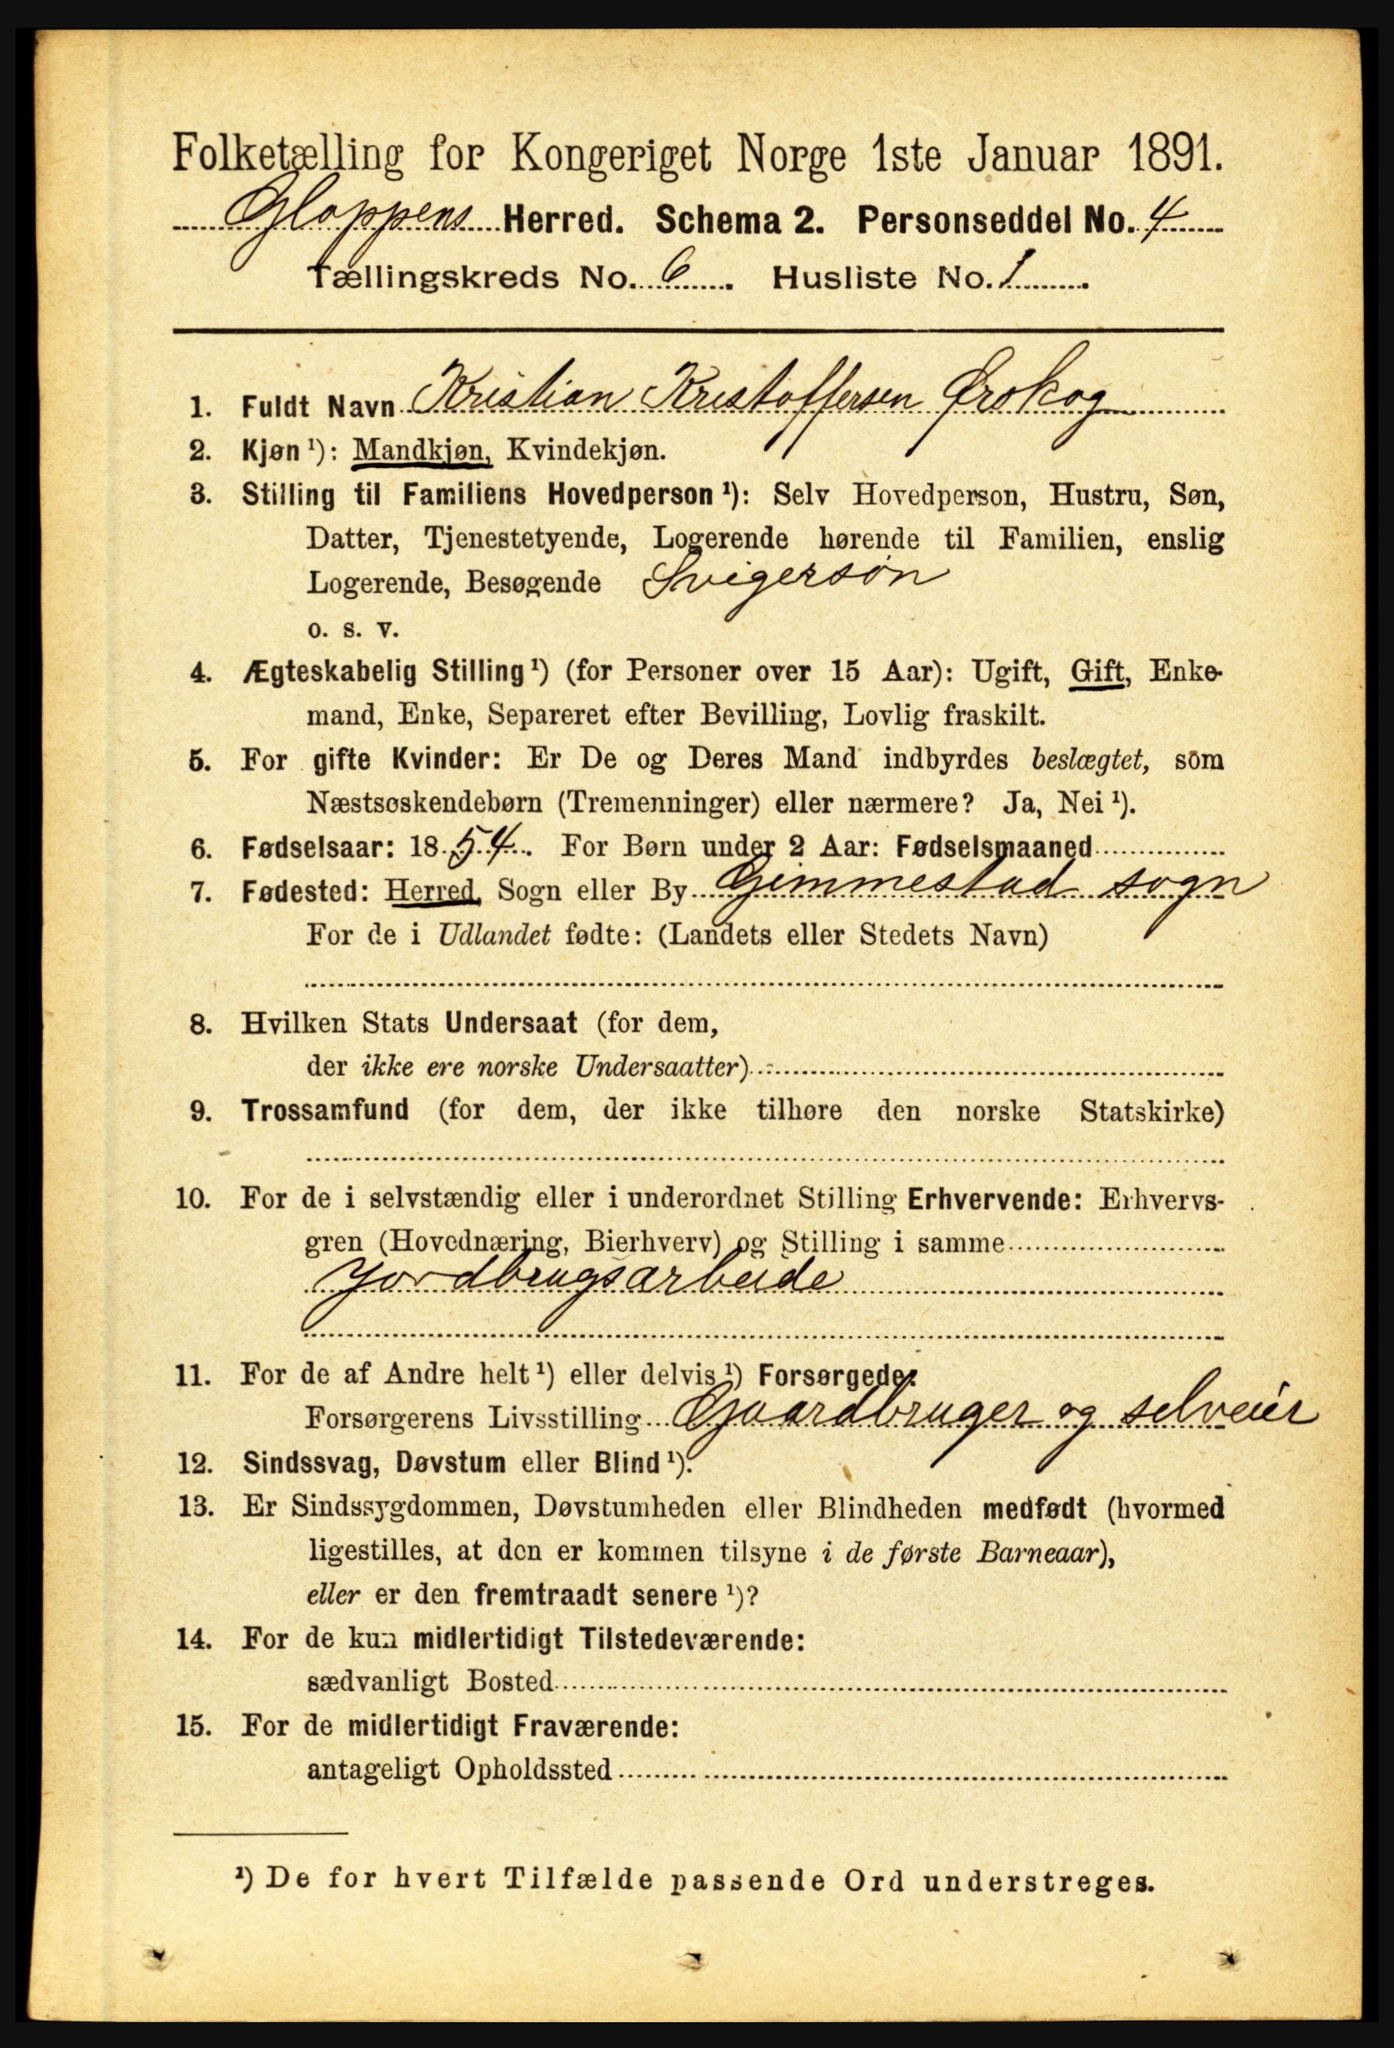 Folketælling for Kongeriget Norge 1ste Januar 1891.
Gloppens Herred. Schema 2. Personseddel No. 4
Tællingskreds No. 6. Husliste No. 1.
1. Fuldt Navn Kristian Kristoffersen Ørskog
2. Kjøn ¹): Mandkjøn, Kvindekjøn.
3. Stilling til Familiens Hovedperson ¹): Selv Hovedperson, Hustru, Søn,
Datter, Tjenestetyende, Logerende hørende til Familien, enslig
Logerende, Besøgende Svigersøn
o. s. v.
4. Ægteskabelig Stilling ¹) (for Personer over 15 Aar): Ugift, Gift, Enke-
mand, Enke, Separeret efter Bevilling, Lovlig fraskilt.
5. For gifte Kvinder: Er De og Deres Mand indbyrdes beslægtet, som
Næstsøskendebørn (Tremenninger) eller nærmere? Ja, Nei ¹).
6. Fødselsaar: 1854. For Børn under 2 Aar: Fødselsmaaned
7. Fødested: Herred, Sogn eller By Gimmestad sogn
For de i Udlandet fødte: (Landets eller Stedets Navn)
8. Hvilken Stats Undersaat (for dem,
der ikke ere norske Undersaatter)
9. Trossamfund (for dem, der ikke tilhøre den norske Statskirke)
10. For de i selvstændig eller i underordnet Stilling Erhvervende: Erhvervs-
gren (Hovednæring, Bierhverv) og Stilling i samme
Jordbrugsarbeide
11. For de af Andre helt ¹) eller delvis ¹) Forsørgede:
Forsørgerens Livsstilling Gaardbruger og selveier
12. Sindssvag, Døvstum eller Blind ¹).
13. Er Sindssygdommen, Døvstumheden eller Blindheden medfødt (hvormed
ligestilles, at den er kommen tilsyne i de første Barneaar),
eller er den fremtraadt senere ¹)?
14. For de kun midlertidigt Tilstedeværende:
sædvanligt Bosted
15. For de midlertidigt Fraværende:
antageligt Opholdssted
¹) De for hvert Tilfælde passende Ord understreges.